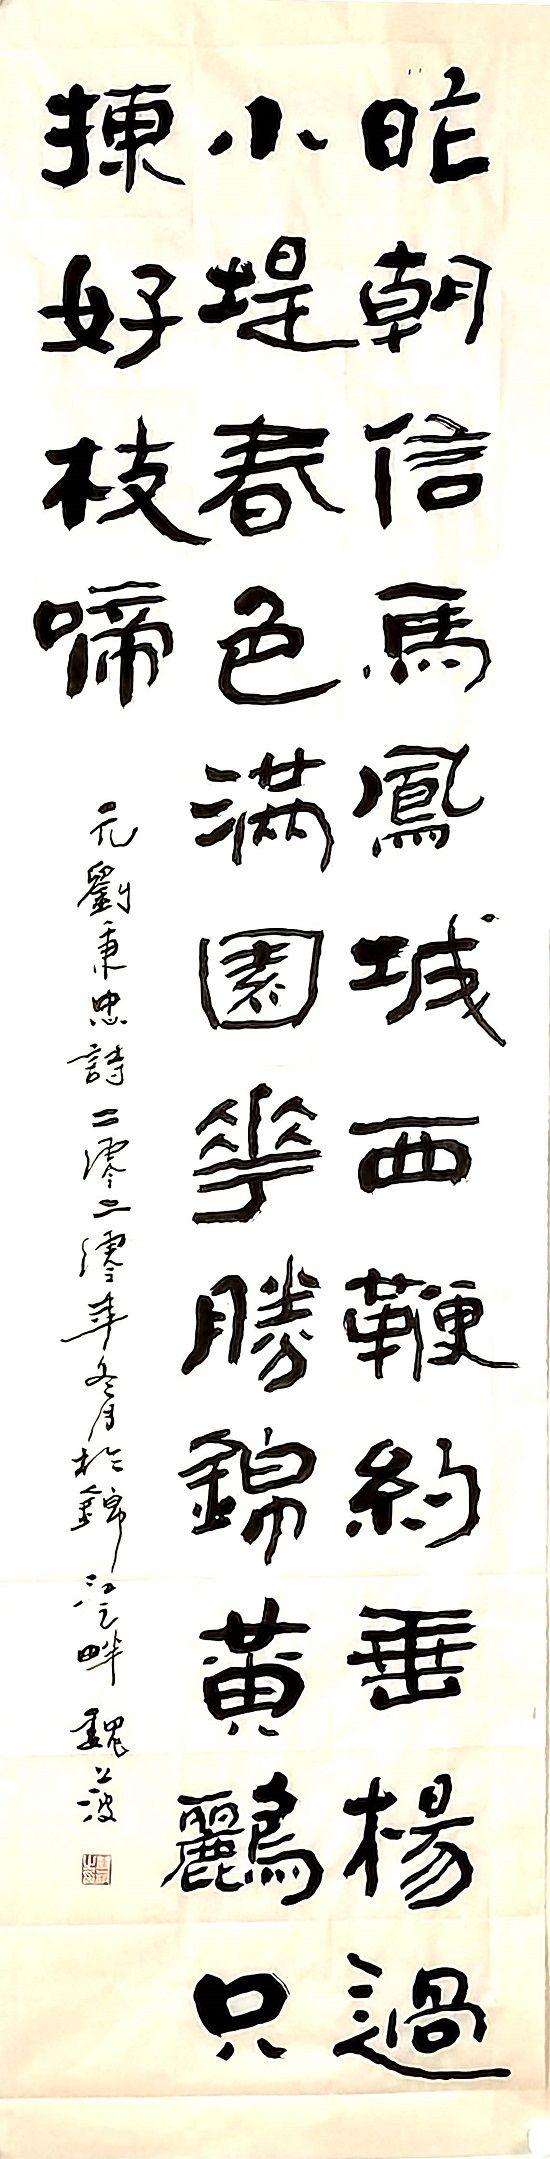 昨朝信馬鳳城西鞭約垂楊過
小堤春色滿園華勝錦黃鸝只
揀好枝啼
元劉秉忠詩二零二零年冬月於錦江之畔 魏